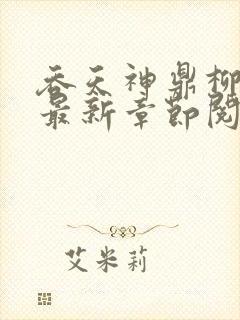 吞天神鼎柳
最新章节阅
艾米莉